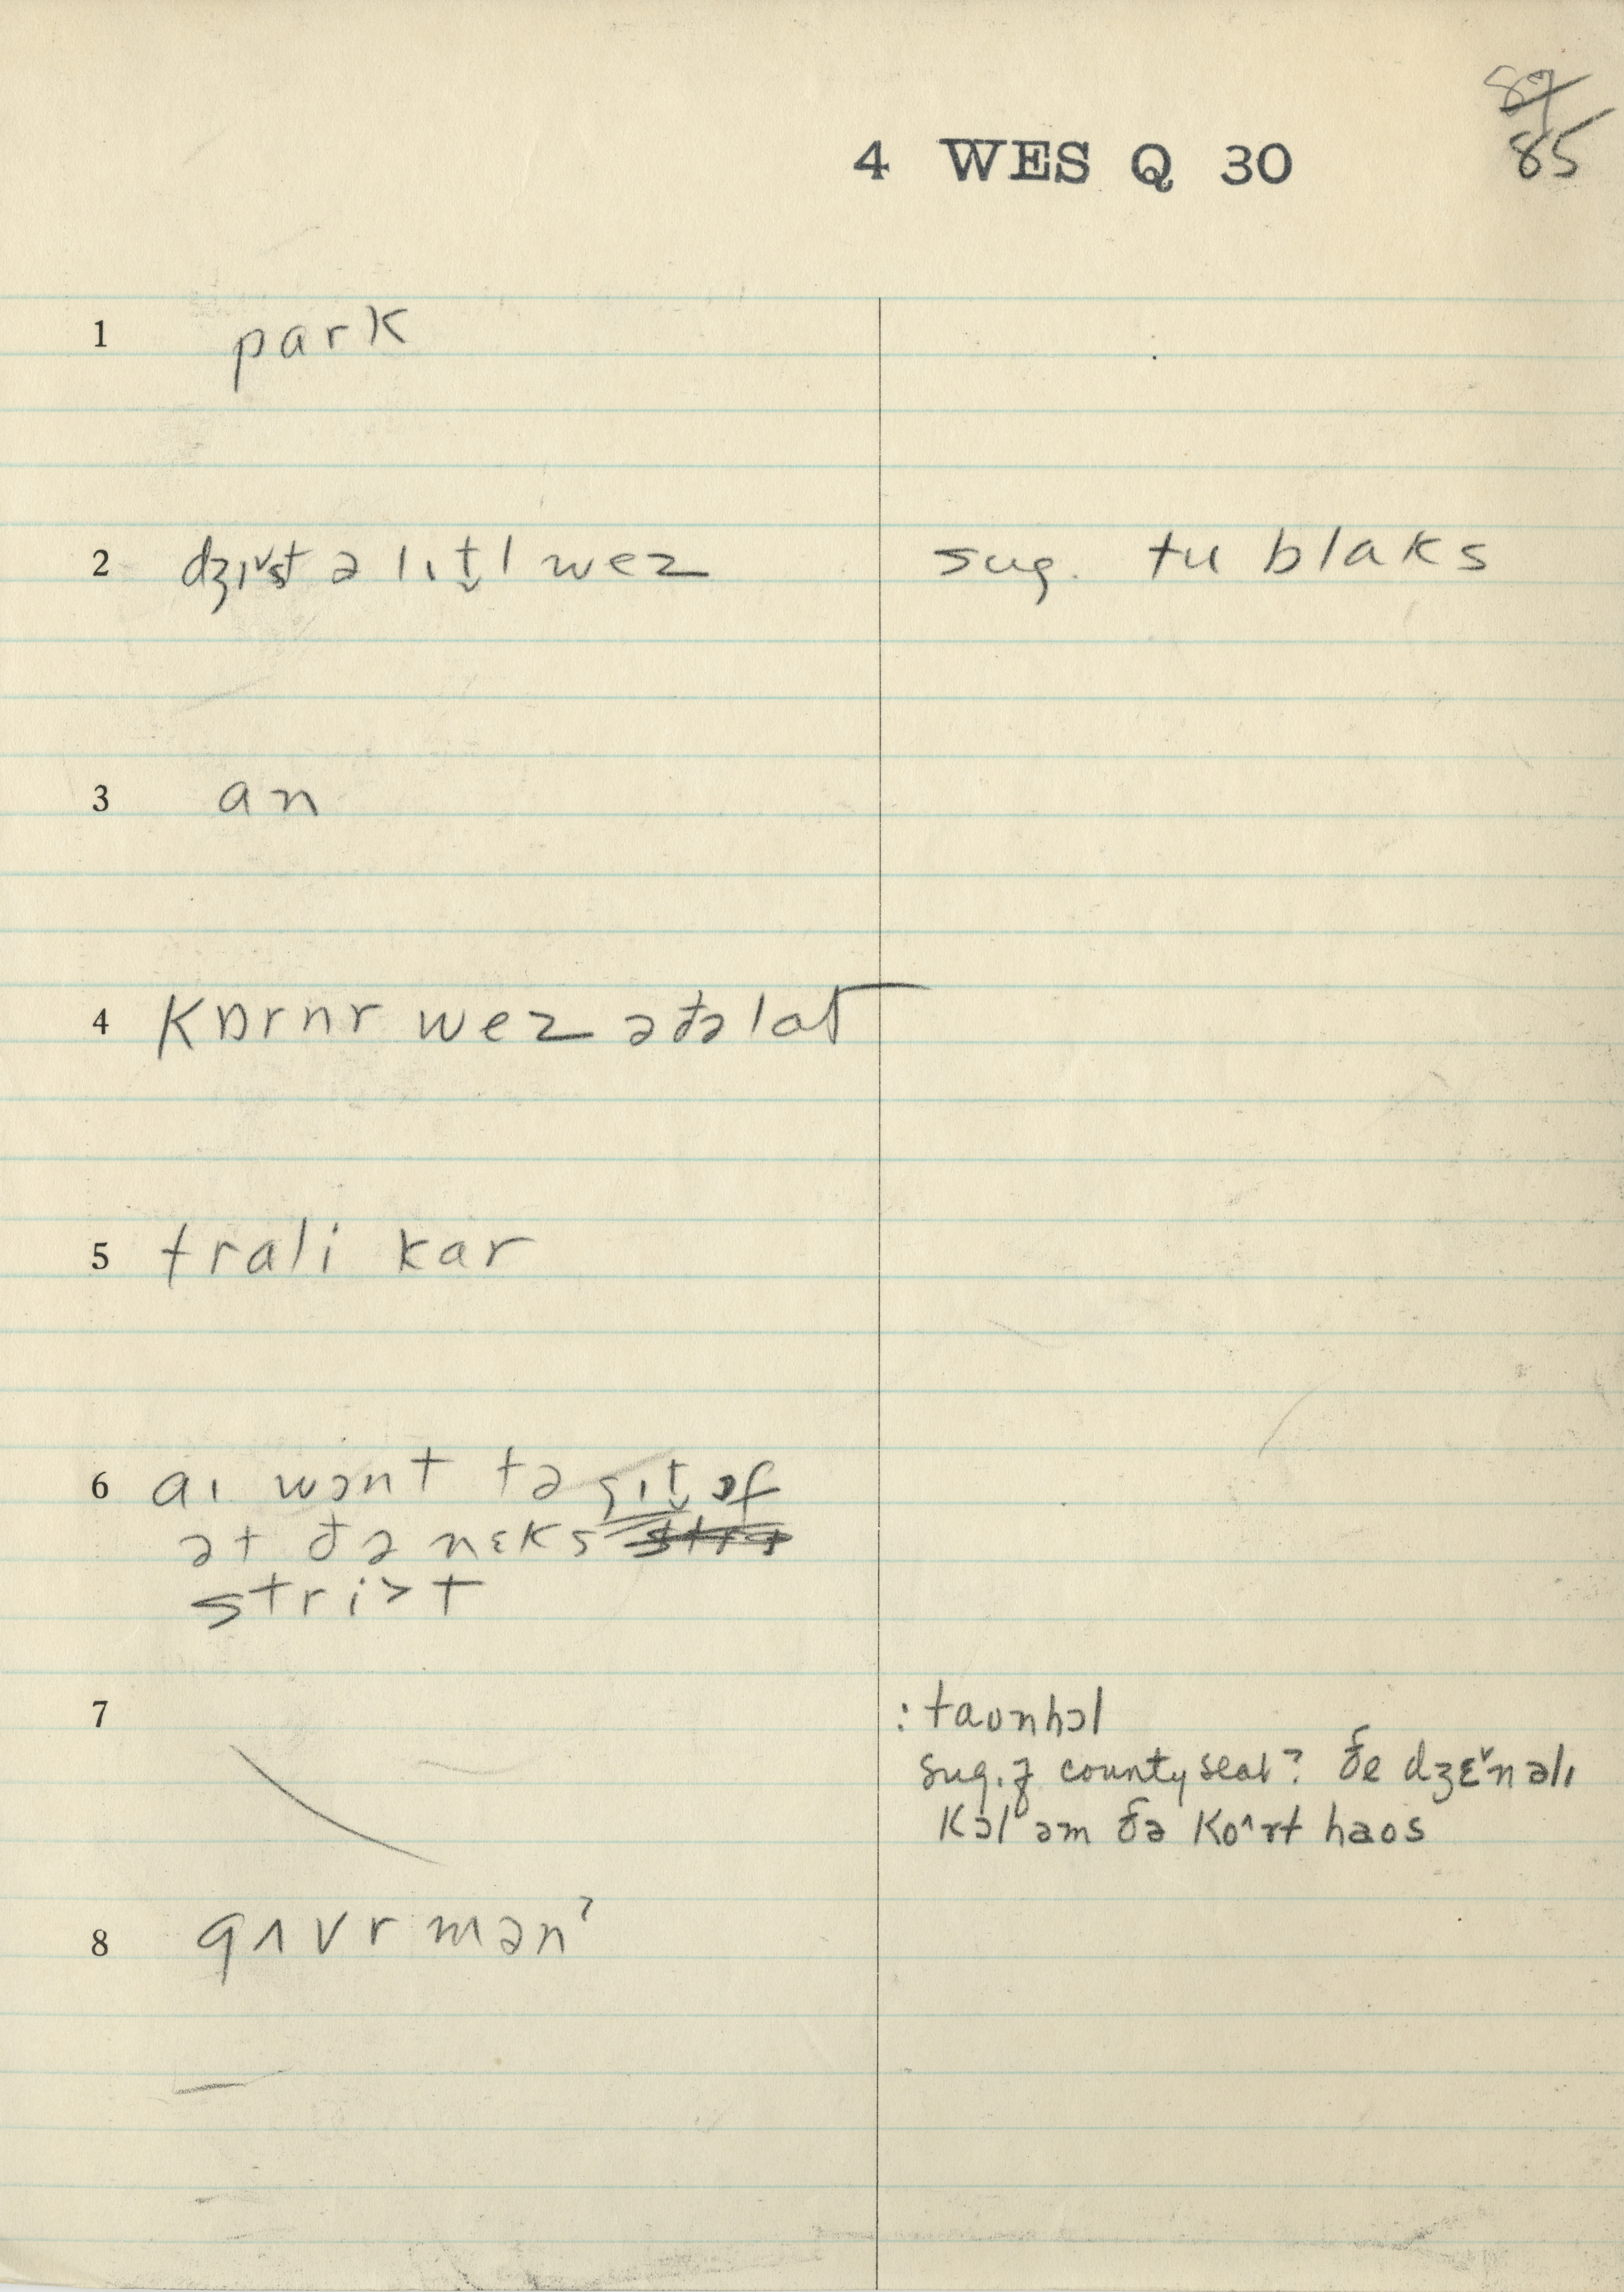 8̶9̶
85
4 WES Q 30
1 park
2 dʒɪ˅st ə lɪt̬l wez
sug. tu blaks
3 an
4 kɒrnr wez əðə lat
5 trali kar
6 aɪ wɔnt tə gɪt̬ ɔf
ət ðə nɛks
stri>t
7
: taʊnhɔl
sug. of county seat? ðe dʒɛ˅nəlɪ
kɔl əm ðə ko^rt haos
8 gʌvrmənʔ